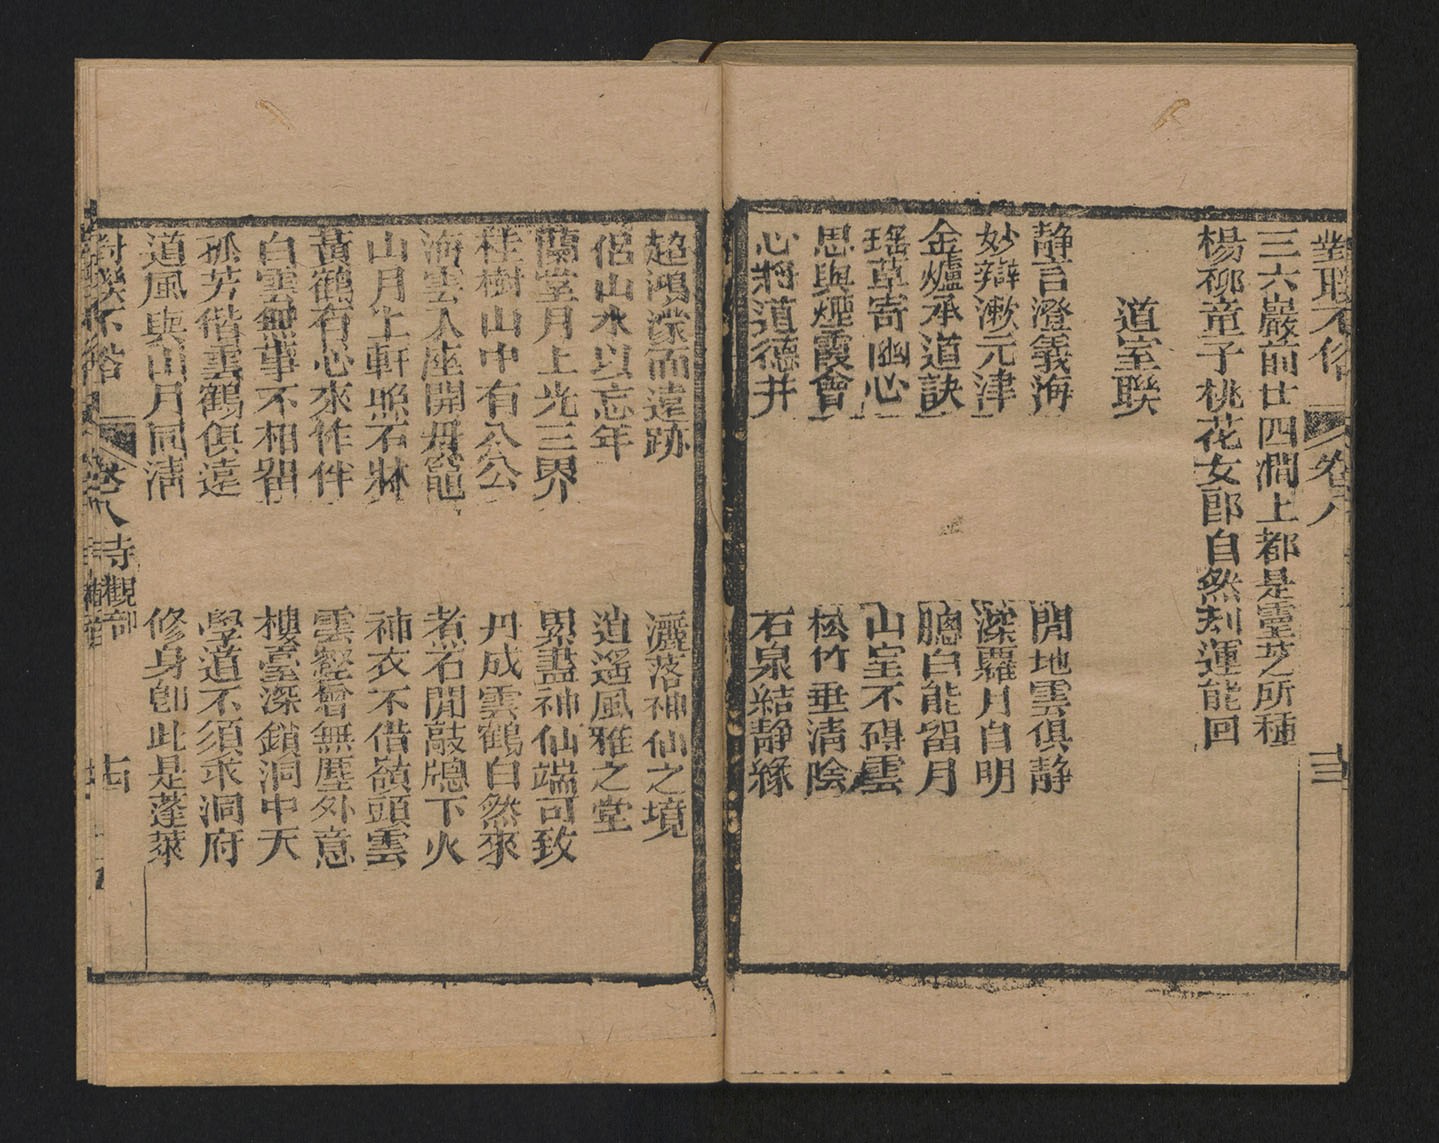 對聯不俗 卷八 十三
三六巖前廿四澗上都是靈芝所種
楊柳童子桃花女郎自然刦運能回
道室聯
靜言澄義海 閒地雲俱静
妙辯漱元津 深蘿月自明
金爐承道訣 牕白能留月
瑤草寄幽心 山室不碍雲
思與煙霞會 松竹垂清陰
心將道德并 石泉結静緣
超鴻濛而遠跡 灑落神仙之境
侣山水以忘年 逍遙風雅之堂
蘭堂月上光三界 界盡神仙端可致
桂樹山中有八公 丹成雲鶴自然來
海雲入座開丹竈 煮石閒敲牕下火
山月上軒照石牀 衲衣不借嶺頭雲
黃鶴有心來作伴 雲壑會無塵外意
白雲無事不相留 樓臺深鎖洞中天
孤芳偕雲鶴俱遠 學道不須求洞府
道風與山月同清 修身卽此是蓬萊
對聯不俗 卷八 寺觀部 十四